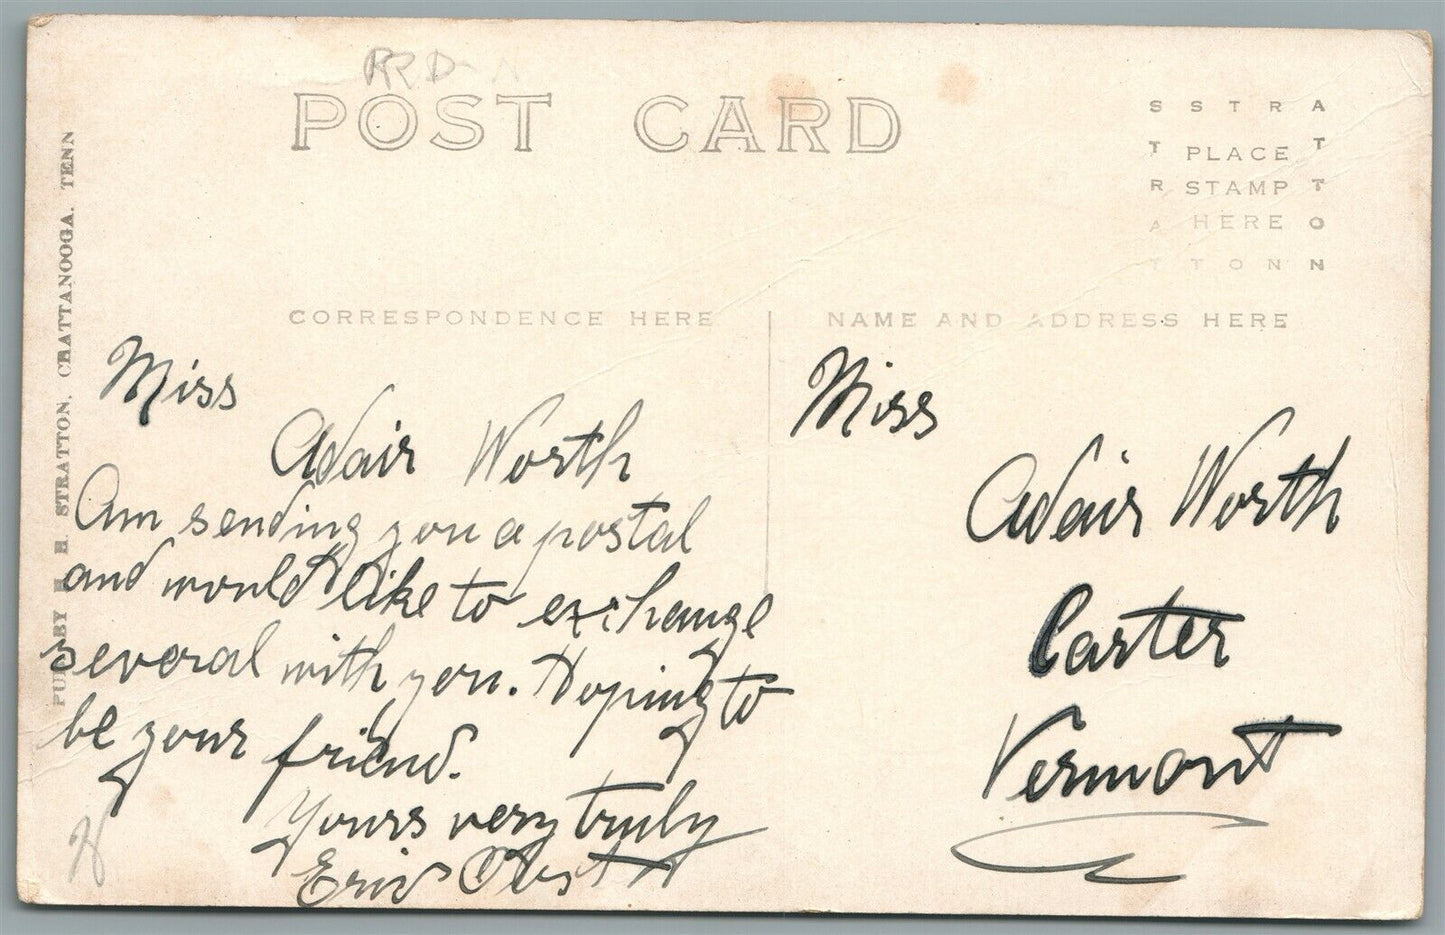 POST CARD
S S T R A
T PLACE T
R STAMP T
A HERE O
T T O N N
CORRESPONDENCE HERE
NAME AND ADDRESS HERE
PUB. BY H. H. STRATTON, CHATTANOOGA, TENN
Miss
Adair Worth
Am sending you a postal
and would like to exchange
several with you. Hoping to
be your friend.
Yours very truly
Miss
Adair Worth
Carter
Vermont